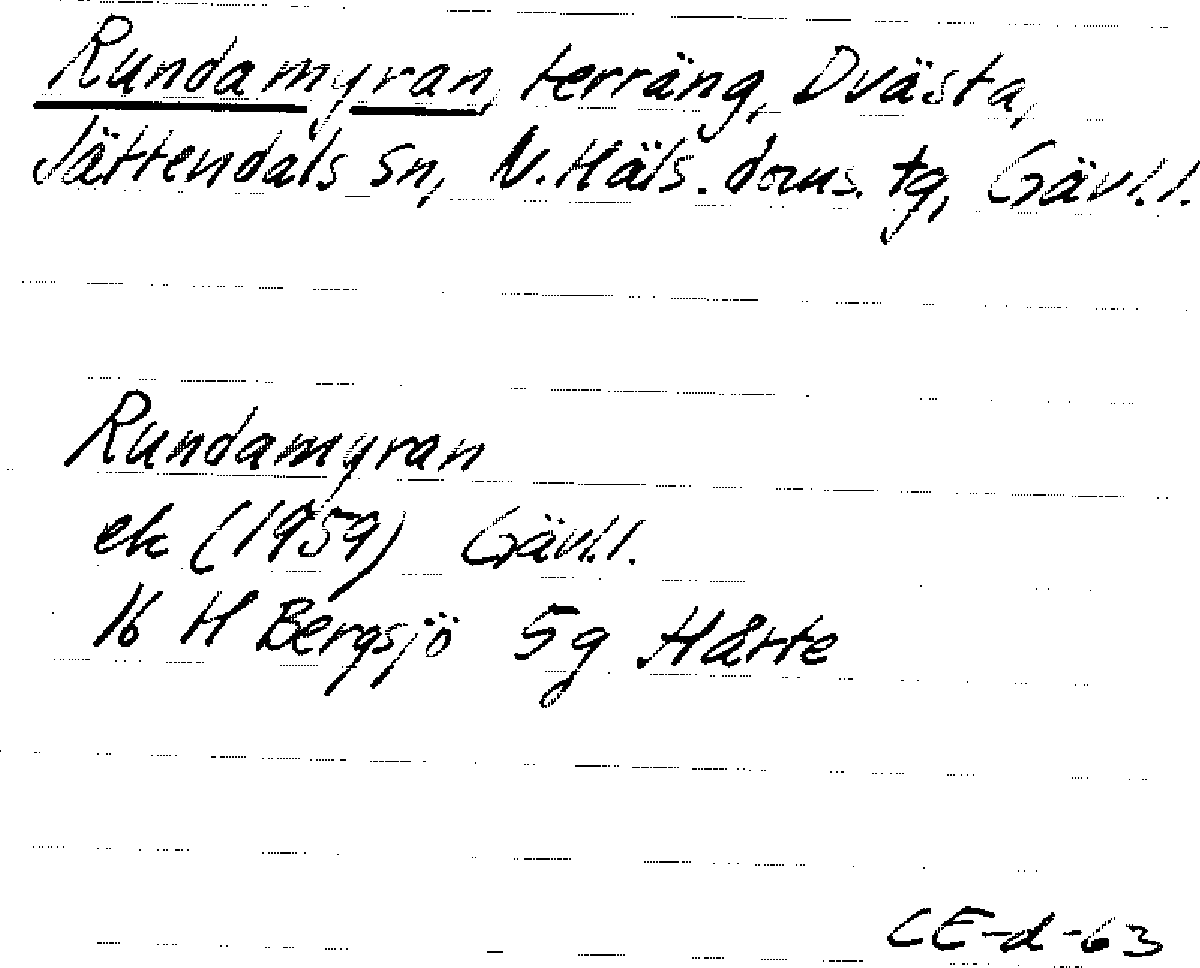 Rundamyran, terräng, Dvästa,
Jättendals sn, N. Häls. doms. tg, Gävl.l.
Rundamyran
ek (1959) Gävl.l.
16 H Bergsjö 5g Hårte
CE-d-63